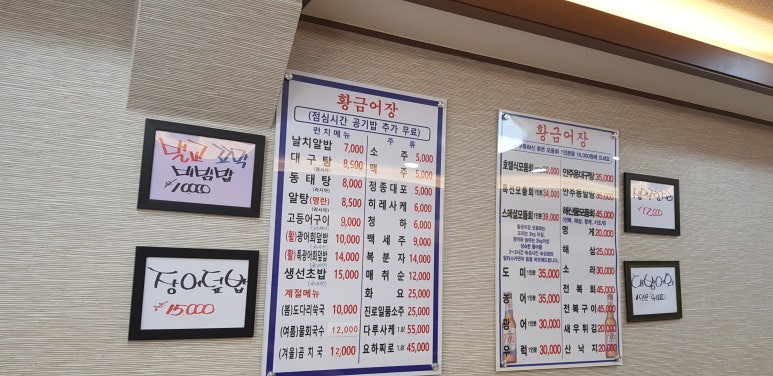 벌교 꼬막
비빔밥
10000
장어덮밥
15,000
황금어장
(점심시간 공기밥 추가 무료)
런치메뉴
날치알밥 7,000
대구탕 8,500
동태탕 8,000
알탕(명란) 8,500
고등어구이 8,000
(활)광어회덮밥 10,000
(활)특광어회덮밥 14,000
생선초밥 15,000
계절메뉴
(봄)도다리쑥국 10,000
(여름)물회국수 12,000
(겨울)곰치국 12,000
주류
소주 5,000
맥주 5,000
정종대포 5,000
히레사케 6,000
청하 6,000
백세주 9,000
복분자 14,000
매취순 12,000
화요 25,000
진로일품소주 25,000
다루사케 55,000
요하찌로 45,000
황금어장
호텔식모듬회
특선모듬회 34,000
스페셜모듬회 39,000
도미 35,000
농어 35,000
광어 30,000
우럭 30,000
안주용대구탕 35,000
안주용알탕 35,000
해산물모듬회 45,000
멍게 20,000
해삼 25,000
소라 30,000
전복회 45,000
전복구이 45,000
새우튀김 20,000
산낙지 20,000
12,000